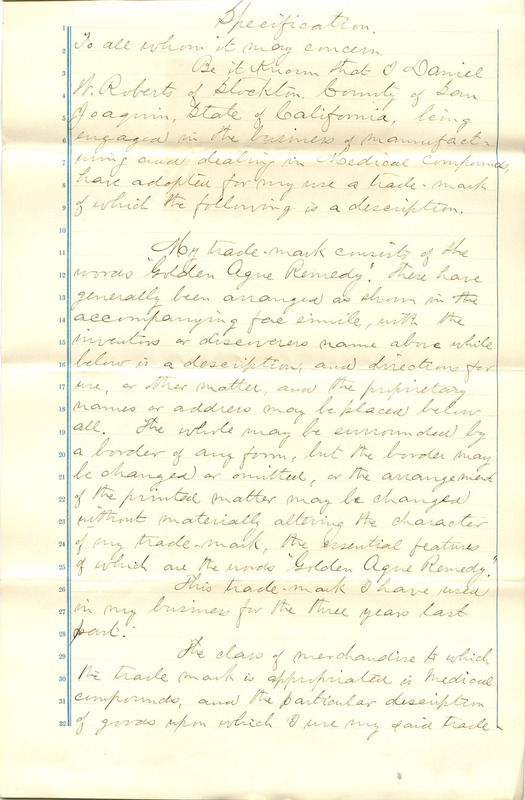 Specification.
2 To all whom it may concern.
3 Be it Known that I Daniel
4 W. Roberts of Stockton. County of San
5 Joaquin, State of California, being
6 engaged in the business of manufact-
7 uring and dealing in Medical Compounds,
8 have adopted for my use a trade-mark
9 of which the following is a description.
10
11 My trade-mark consists of the
12 words "Golden Ague Remedy". These have
13 generally been arranged as shown in the
14 accompanying fac simile, with the
15 inventors or discoverers name above while
16 below is a description, and directions for
17 use, or other matter, and the proprietary
18 names or address may be placed below
19 all. The whole may be surrounded by
20 a border of any form, but the border may
21 be changed or omitted, or the arrangement
22 of the printed matter may be changed
23 without materially altering the character
24 of my trade-mark, the essential features
25 of which are the words "Golden Ague Remedy."
26 This trade-mark I have used
27 in my business for the three years last
28 past.
29 The class of merchandise to which
30 the trade mark is appropriated is Medical
31 compounds, and the particular description
32 of goods upon which I use my said trade-